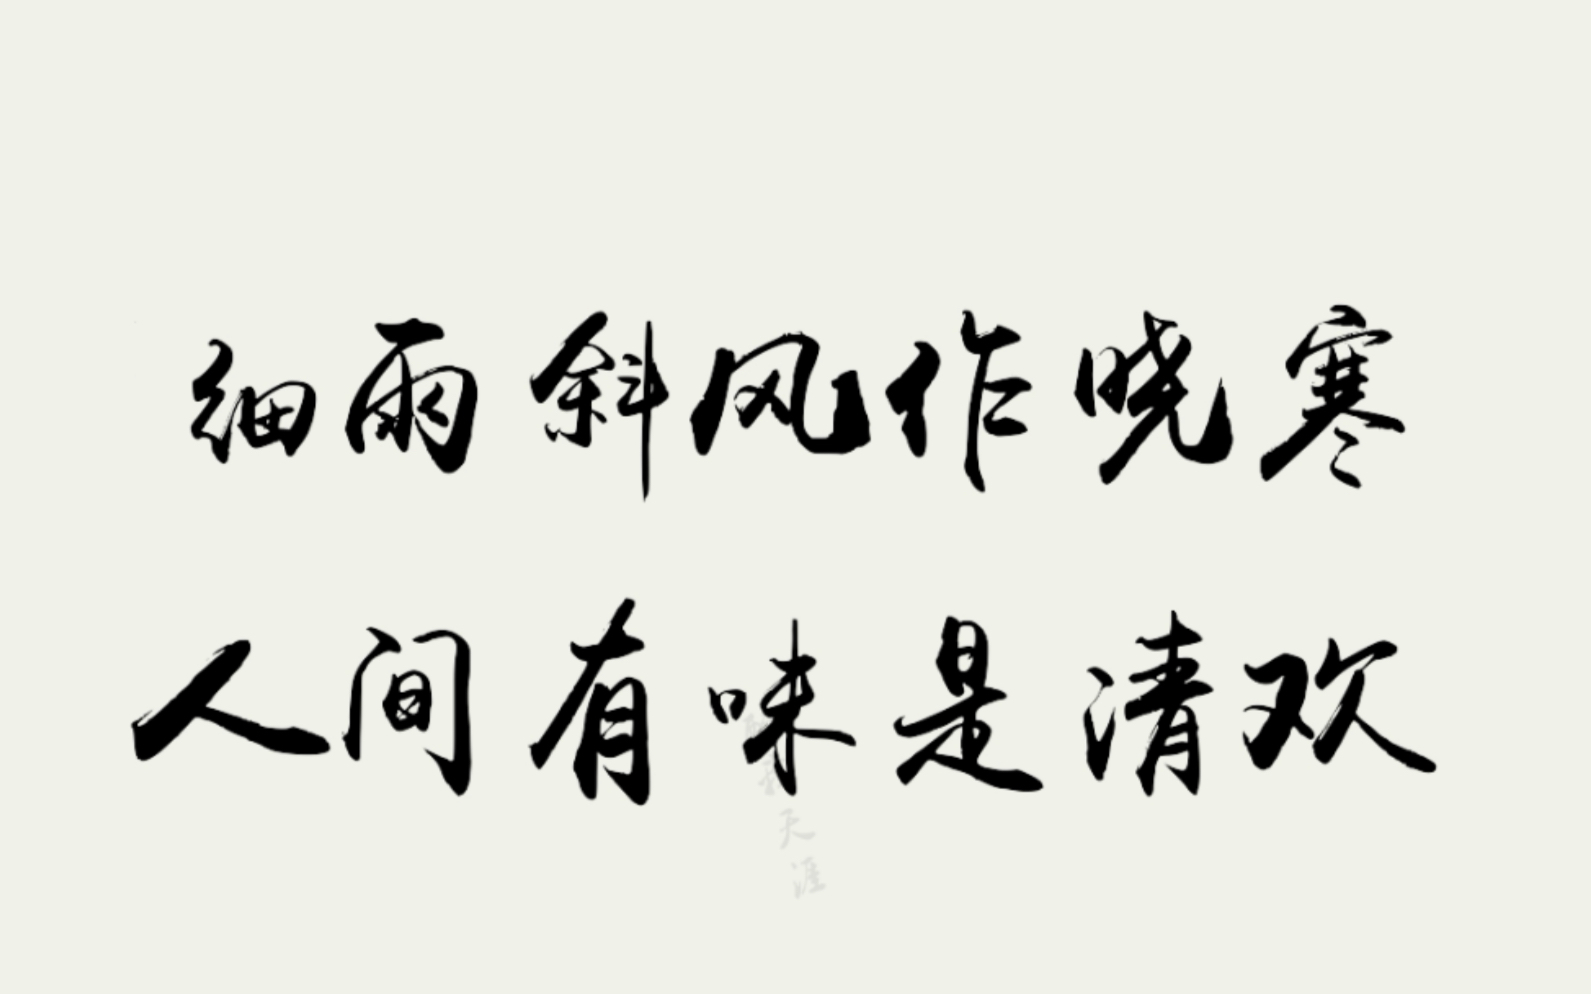 细雨斜风作晓寒
人间有味是清欢
天涯